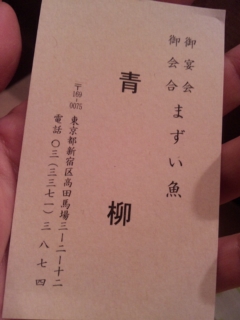 御宴会
御会合
まずい魚
青柳
(〒169-0075
東京都新宿区高田馬場三−二−十二
電話〇三(三三七一)三八七四